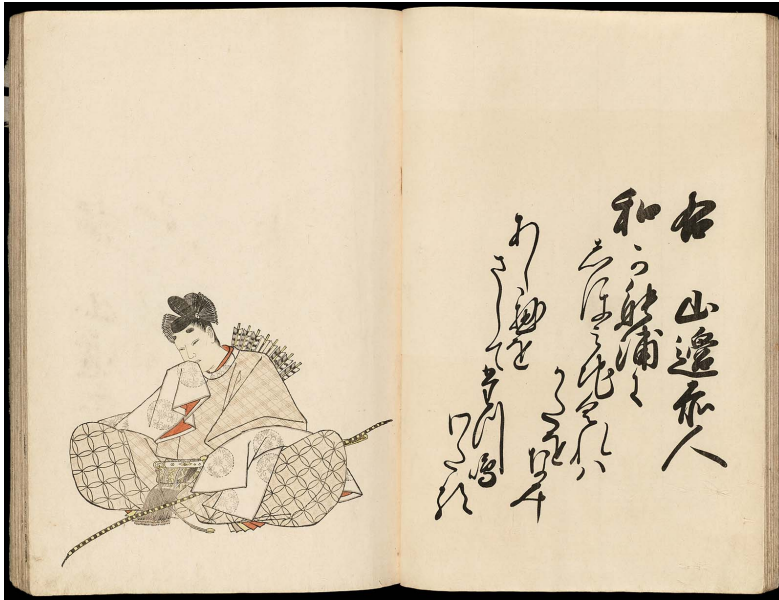 右 山邊赤人
和可能浦に
志ほみちくれハ
かたをなみ
あし邊を
さして堂川鳴
わたる